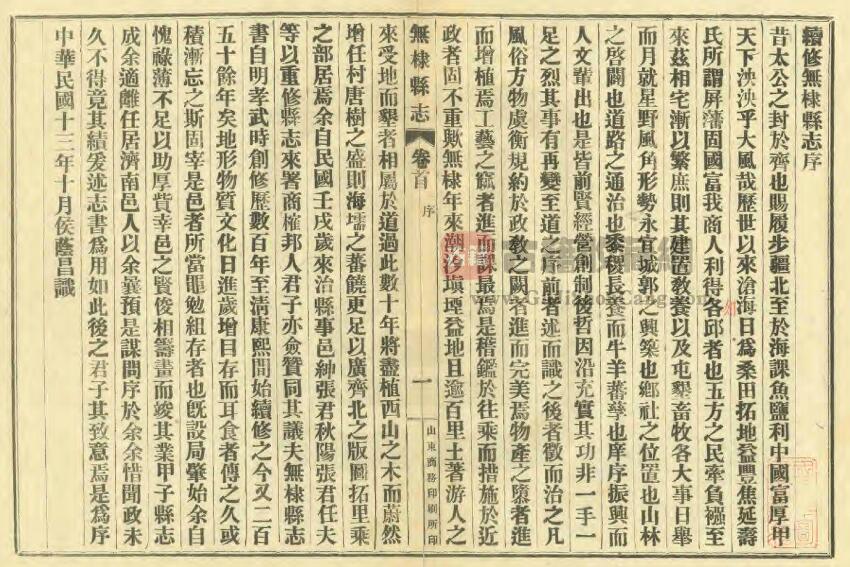 續修無棣縣志序
昔太公之封於齊也賜履步疆北至於海課魚鹽利中國富厚甲
天下泱泱乎大風哉歷世以來滄海日為桑田拓地益豐焦延壽
氏所謂屏藩固國富我商人利得各邱者也五方之民牽負襁至
來茲相宅漸以繁庶則其建置教養以及屯墾畜牧各大事日舉
而月就星野風角形勢永宜城郭之興築也鄉社之位置也山林
之啓闢也道路之通治也黍稷長養而牛羊蕃孳也庠序振興而
人文輩出也是皆前賢經營創制後哲因沿充實其功非一手一
足之烈其事有再變至道之序前者述而識之後者徵而治之凡
風俗方物虞衡規約於政教之闕者進而完美焉物產之隳者進
而增植焉工藝之窳者進而課最焉是稽鑑於往乘而措施於近
政者固不重歟無棣年來潮沙塡堙益地且逾百里土著游人之
無棣縣志
卷首
序
一
山東商務印刷所印
來受地而墾者相屬於道過此數十年將盡植西山之木而蔚然
增任村唐樹之盛則海壖之蕃饒更足以廣齊北之版圖拓里乘
之部居焉余自民國壬戌歲來治縣事邑紳張君秋陽張君任夫
等以重修縣志來署商榷邦人君子亦僉贊同其議夫無棣縣志
書自明孝武時創修歷數百年至淸康熙間始續修之今又二百
五十餘年矣地形物質文化日進歲增目存而耳食者傳之久或
積漸忘之斯固宰是邑者所當黽勉組存者也旣設局肇始余自
愧祿薄不足以助厚貲幸邑之賢俊相籌畫而竣其業甲子縣志
成余適離任居濟南邑人以余曩預是謀問序於余余惜聞政未
久不得竟其績爰述志書為用如此後之君子其致意焉是為序
中華民國十三年十月侯蔭昌識